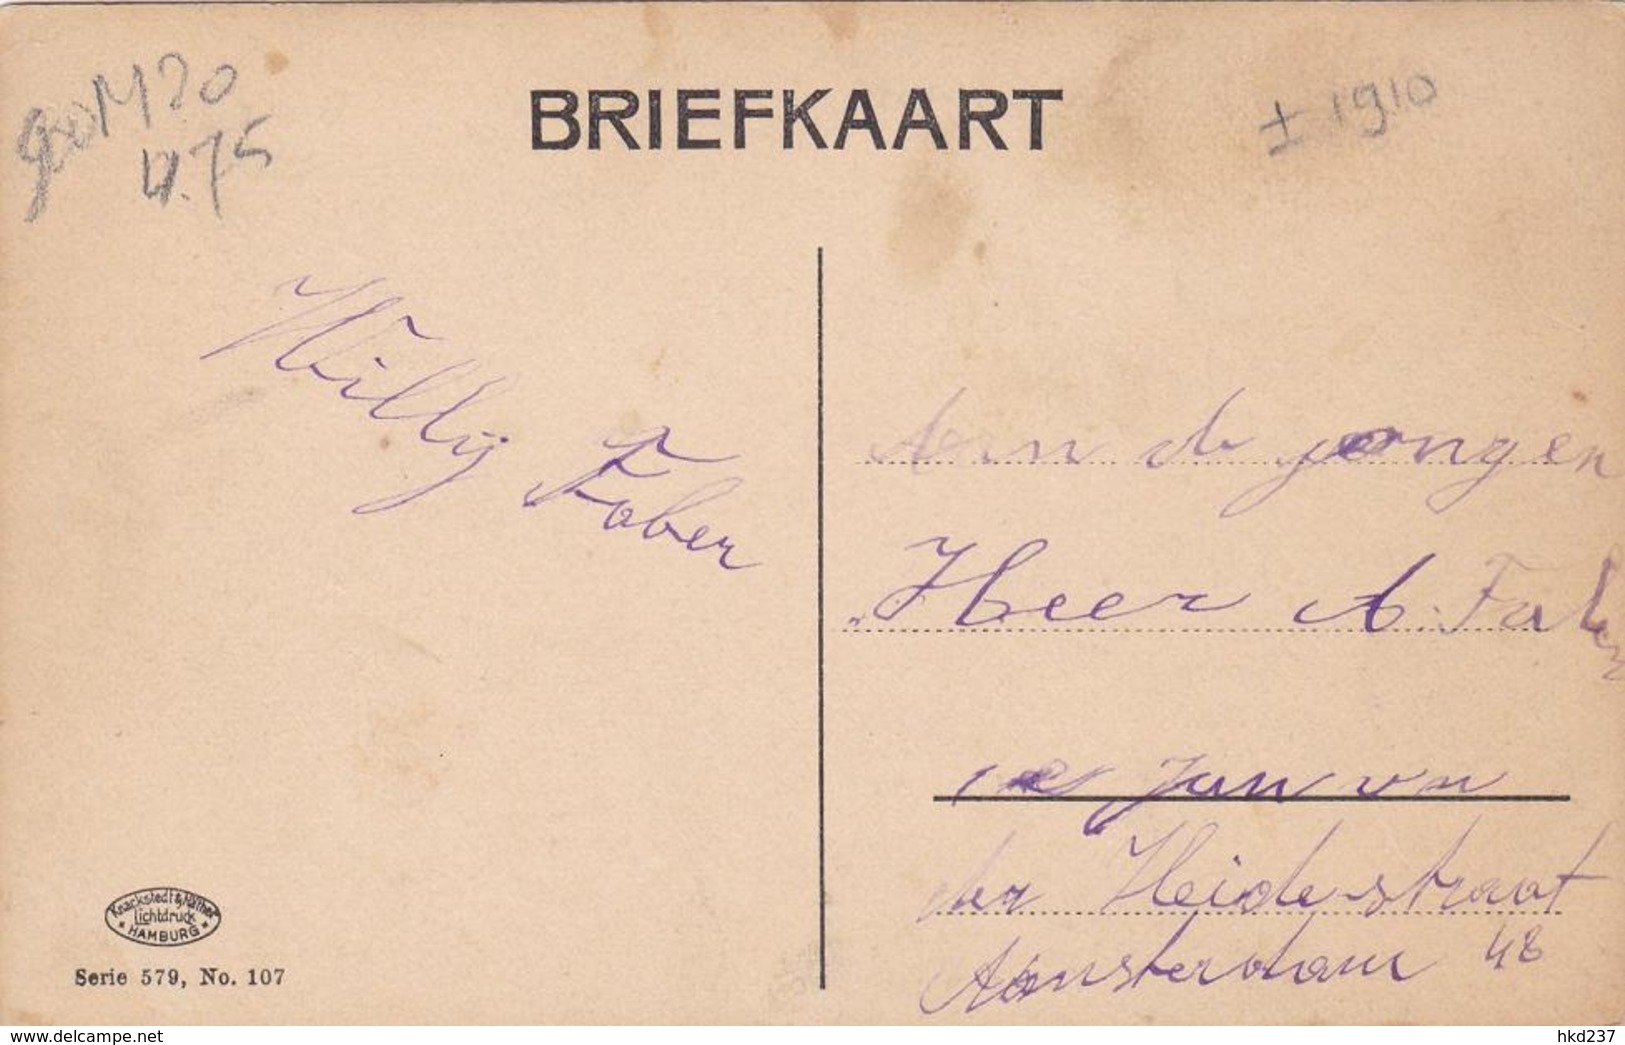 BRIEFKAART
± 1910
4.75
Willy Faber
Aan de jongen
Heer A. Faber
1e Jan van
der Heidestraat
Amsterdam 48
Knackstedt & Näther
Lichtdruck
HAMBURG
Serie 579, No. 107
www.delcampe.net
hkd237